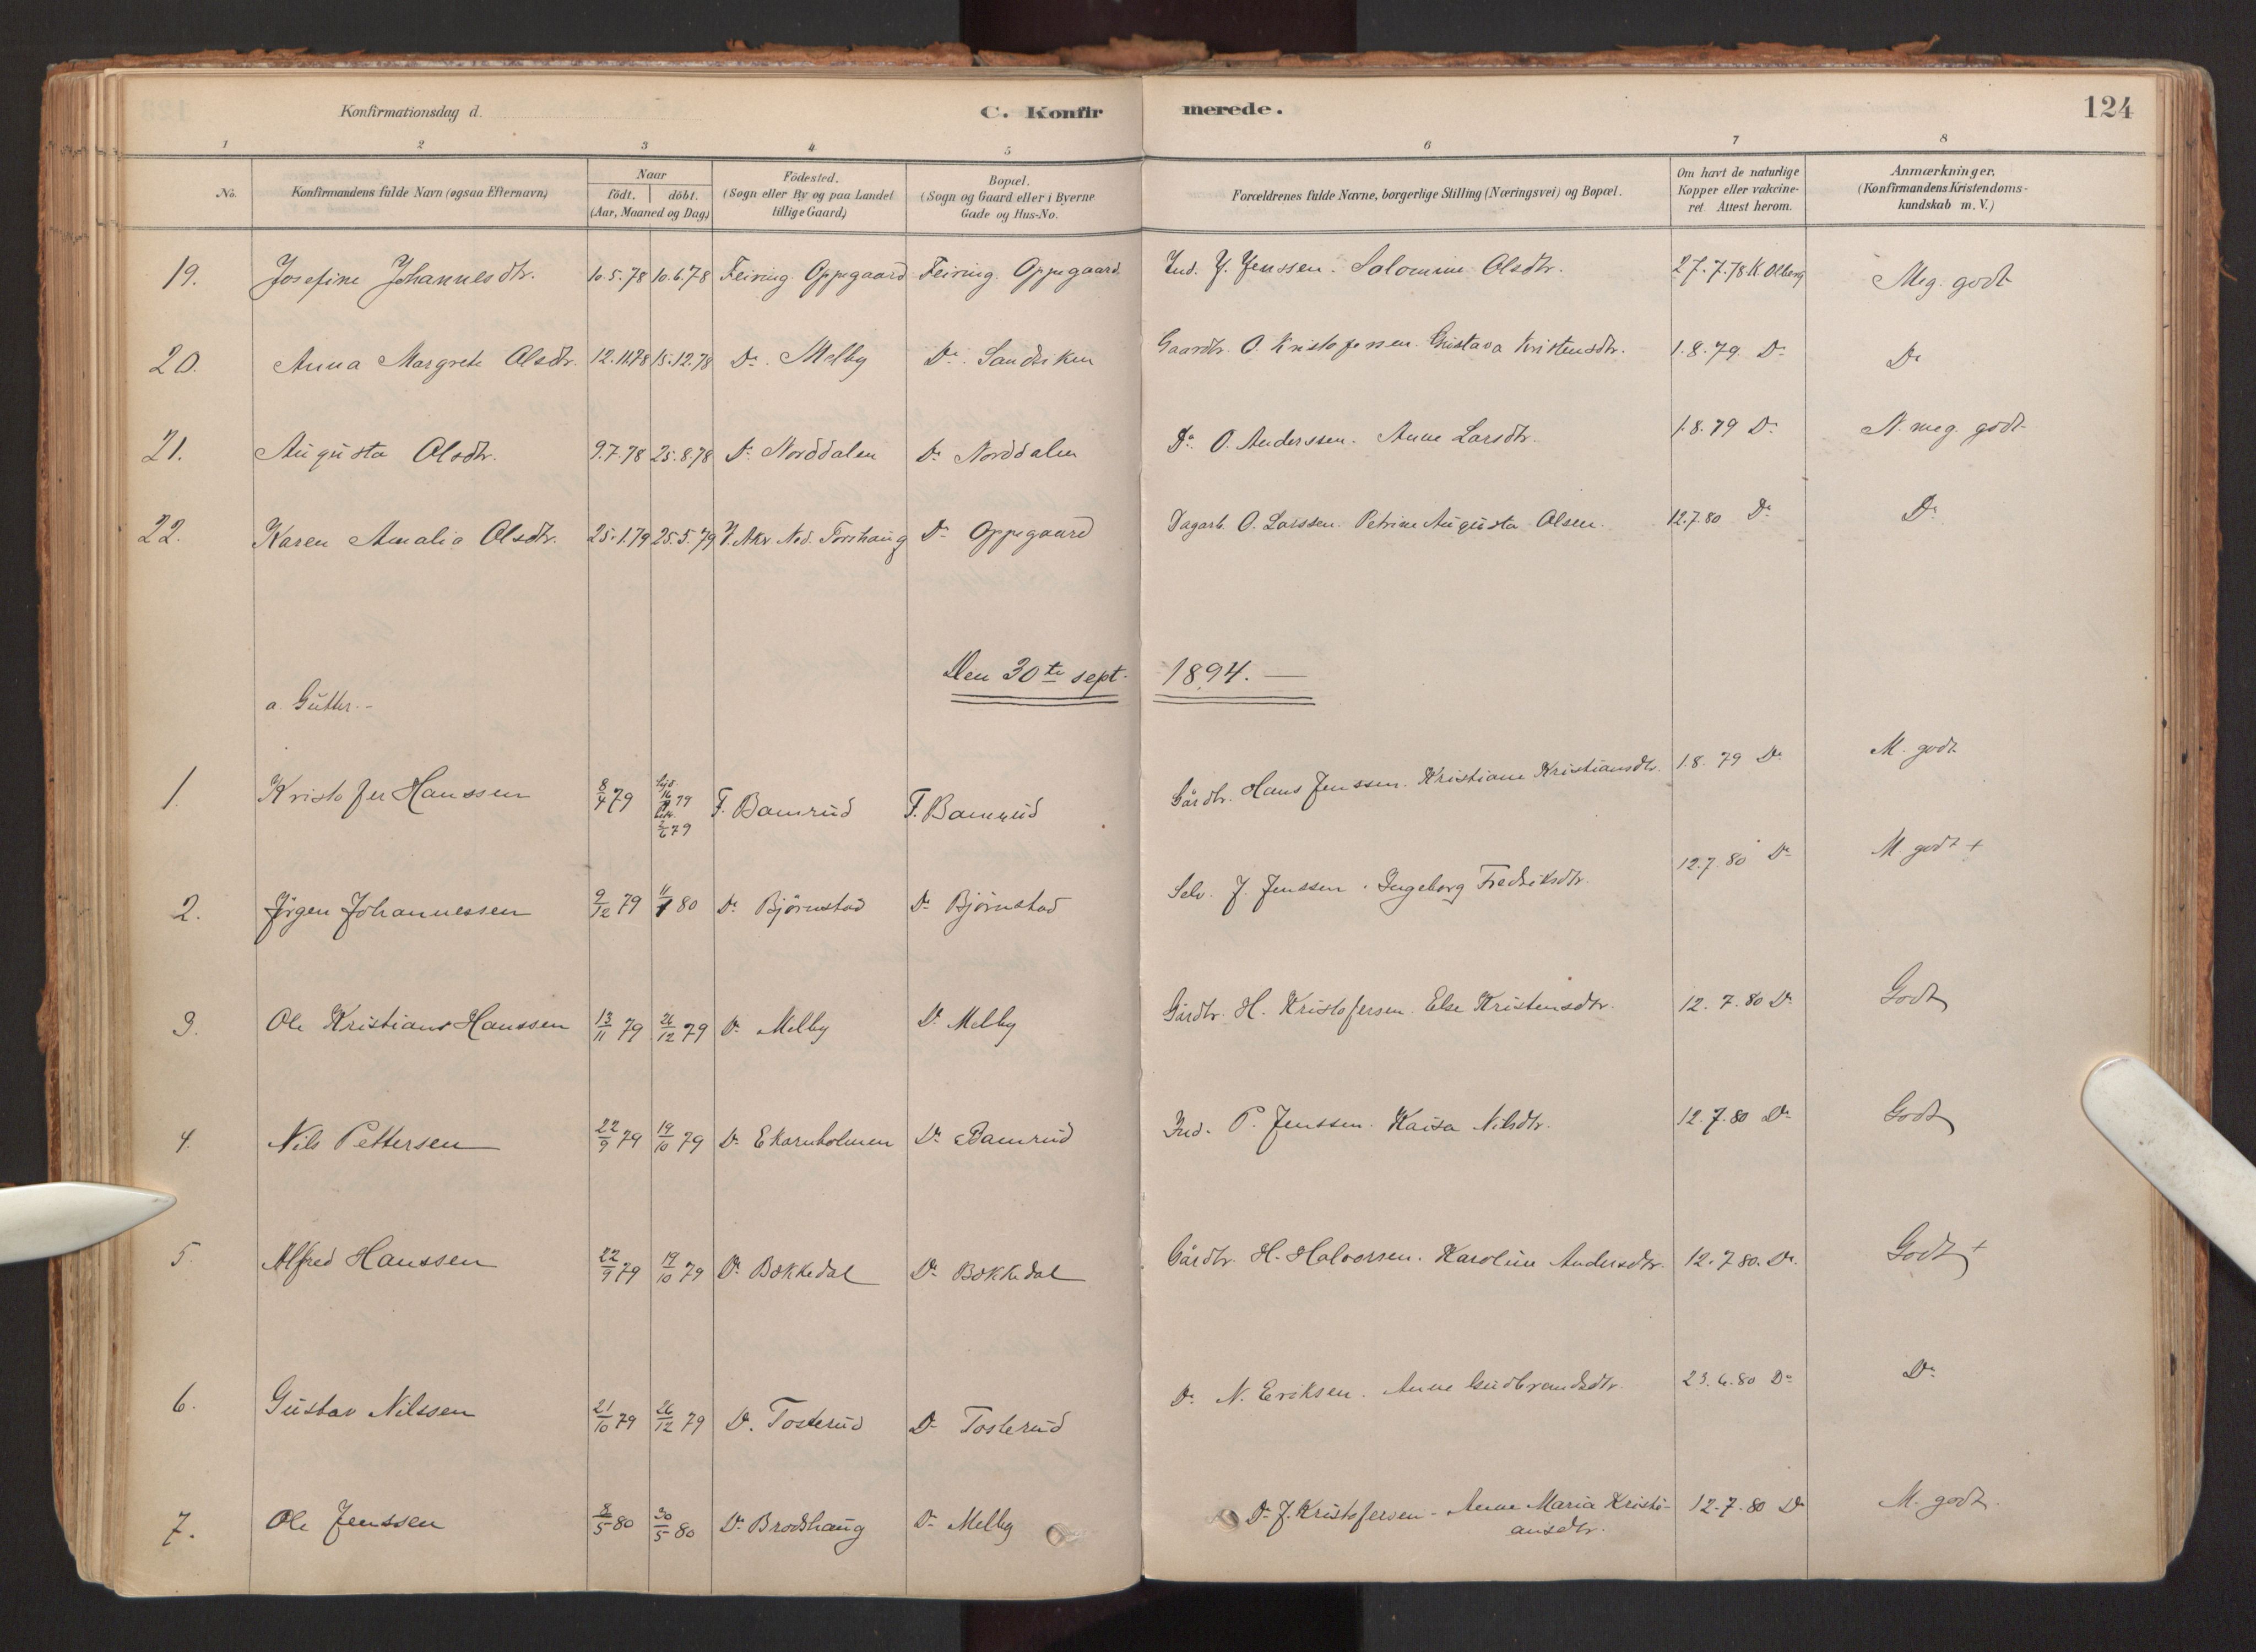 Konfirmationsdag d.
C. Konfirmerede.
124
1 2 3 4 5 6 7 8
No. Konfirmandens fulde Navn (ogsaa Efternavn) Naar födt. döbt. (Aar, Maaned og Dag) Födested. (Sogn eller By og paa Landet tillige Gaard) Bopæl. (Sogn og Gaard eller i Byerne Gade og Hus-No. Forældrenes fulde Navne, borgerlige Stilling (Næringsvei) og Bopæl. Om havt de naturlige Kopper eller vakcineret. Attest herom. Anmærkninger. (Konfirmandens Kristendomskundskab m. V.)
19. Josefine Johannesdtr. 10.5.78 10.6.78 Feiring. Oppegaard Feiring. Oppegaard Ind. J. Jenssen. Salomine Olsdtr. 27.7.78 K Olberg Meg. godt
20. Anna Margrete Olsdtr. 12.11.78 15.12.78 Do. Melby Do. Sandviken Gaardbr. O. Kristofersen. Gustava Kristensdtr. 1.8.79 Do Do
21. Augusta Olsdtr. 9.7.78 25.8.78 Do Norddalen Do Norddalen Do. O. Anderssen. Anne Larsdtr. 1.8.79 Do N. meg. godt
22. Karen Amalia Olsdtr. 25.1.79 25.5.79 V. Akr. Ned. Torshaug Do Oppegaard Dagarb. O. Larssen. Petrine Augusta Olsen. 12.7.80 Do Do
Den 30te sept. 1894. —
a. Gutter.-
1. Kristofer Hanssen 8/4 79 2/6 79 F. Bamrud F. Bamrud Gårdbr. Hans Jenssen. Kristiane Kristiansdtr. 1.8.79 Do M. godt
2. Jörgen Johannessen 9/12 79 11/1 80 Do Björnstad Do Björnstad Selv. J. Jenssen. Ingeborg Fredriksdtr. 12.7.80 Do M. godt +
3. Ole Kristian Hanssen 13/11 79 26/12 79 Do Melby Do Melby Gårdbr. H. Kristofersen. Else Kristensdtr. 12.7.80 Do Godt
4. Nils Pettersen 22/9 79 19/10 79 Do Ekornholmen Do Bamrud Ind. P. Jenssen. Kaisa Nilsdtr. 12.7.80 Do Godt
5. Alfred Hanssen 22/9 79 19/10 79 Do Bækkedal Do Bækkedal Gårdbr. H. Halvorsen. Karoline Andersdtr. 12.7.80. Do. Godt +
6. Gustav Nilssen 21/10 79 26/12 79 Do. Tosterud Do Tosterud Do N. Eriksen. Anne Gudbrandsdtr. 23.6.80 Do Do
7. Ole Jenssen 8/5 80 30/5 80 Do Brodshaug Do Melby Do J. Kristofersen - Anne Maria Kristi-
ansdtr. 12.7.80 Do M. godt.